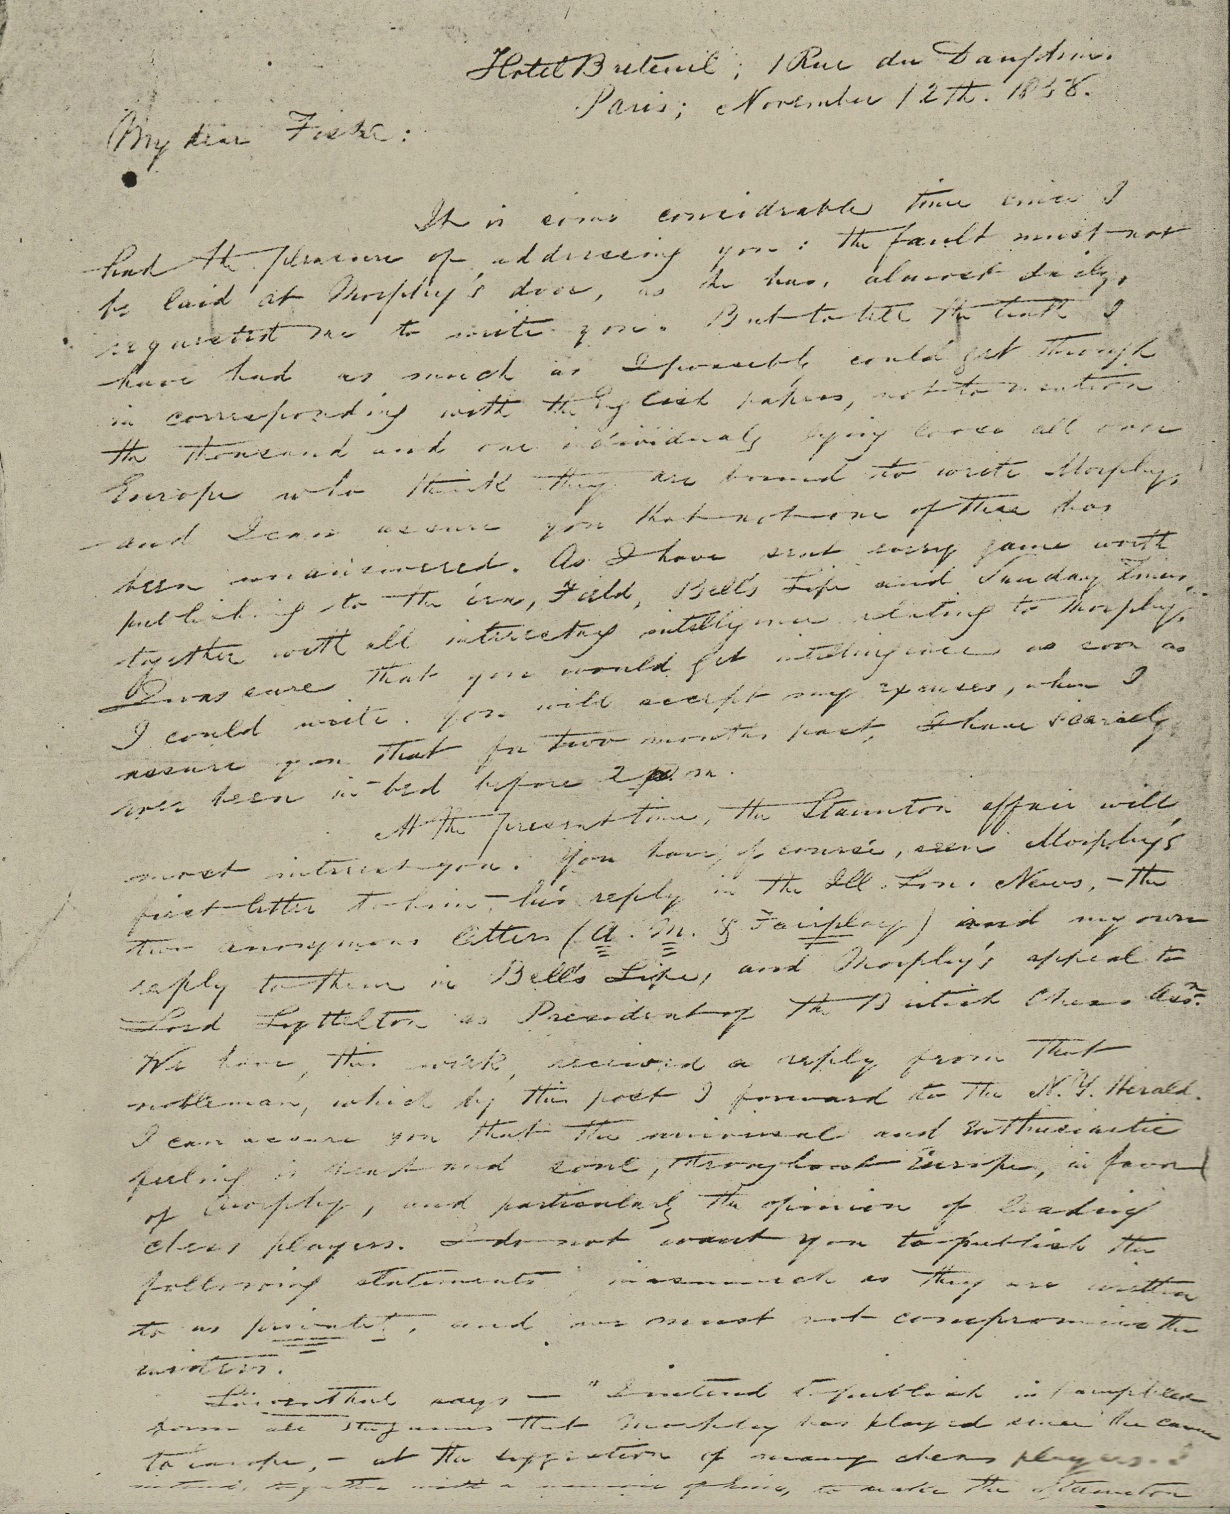 Hotel Breteuil; 1 Rue du Dauphin.
Paris; November 12th. 1858.
My dear Fiske:
It is some considerable time since I
had the pleasure of addressing you: the fault must not
be laid at Morphy's door, as he has, almost daily,
requested me to write you. But to tell the truth I
have had as much as I possibly could get through
in corresponding with the English papers, not to mention
the thousand and one individuals lying loose all over
Europe who think they are bound to write Morphy,
and I can assure you that not one of these has
been unanswered. As I have sent every game worth
publishing to the Era, Field, Bell's Life and Sunday Times,
together with all interesting intelligence relating to Morphy,
I was sure that you would get intelligence as soon as
I could write. You will accept my excuses, when I
assure you that for two months past, I have scarcely
ever been in bed before 2 m.
At the present time, the Staunton affair will
most interest you. You have, of course, seen Morphy's
first letter to him, his reply in the Ill. Lon. News, - the
two anonymous letters (A. M. & Fairplay) and my own
reply to them in Bell's Life, and Morphy's appeal to
Lord Lyttelton as President of the British Chess Assn.
We have, this week, received a reply from that
nobleman, which by this post I forward to the N.Y. Herald.
I can assure you that the universal and enthusiastic
feeling is heart and soul, throughout Europe, in favor
of Morphy, and particularly the opinion of leading
chess players. I do not want you to publish the
following statements inasmuch as they are written
to us private, and we must not compromise the
writers.
Löwenthal says - "I intend to publish in pamphlet
form all the games that Morphy has played since he came
to Europe, - at the suggestion of many chess players. I
intend, together with a memoir of him, to make the Staunton